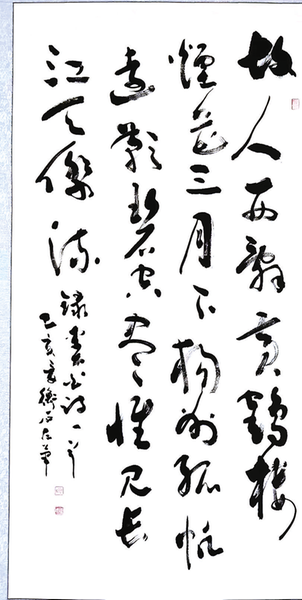 故人西辭黃鶴樓
煙花三月下揚州孤帆
遠影碧空盡惟見長
江天際流
錄李白詩一首
己亥